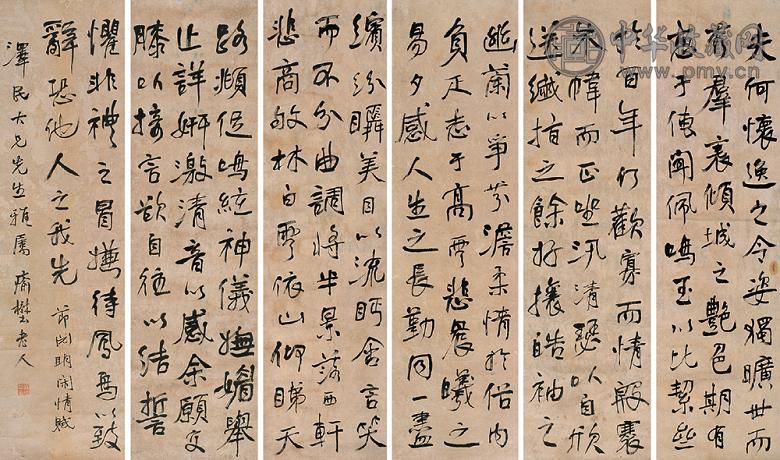 夫何懷逸之令姿獨曠世而
秀羣表傾城之艷色期有
德于傳聞佩鳴玉以比潔齊
於百年何歡寡而情殷褰
朱幃而正坐汎清瑟以自欣
送纖指之餘好攘皓袖之
幽蘭以爭芬澹柔情於俗内
負疋志于高雲悲晨曦之
易夕感人生之長勤同一盡
繽紛瞬美目以流眄含言笑
而不分曲調將半景落西軒
悲商叩林白雲依山仰睇天
路頫促鳴絃神儀嫵媚舉
止詳妍激清音以感余願交
膝以接言欲自往以結誓
懼非禮之冒愆待鳳鳥以致
辭恐他人之我先
節淵明閒情賦
澤民大兄先生雅屬 樊老人
中华收藏网
www.pmyv.cn